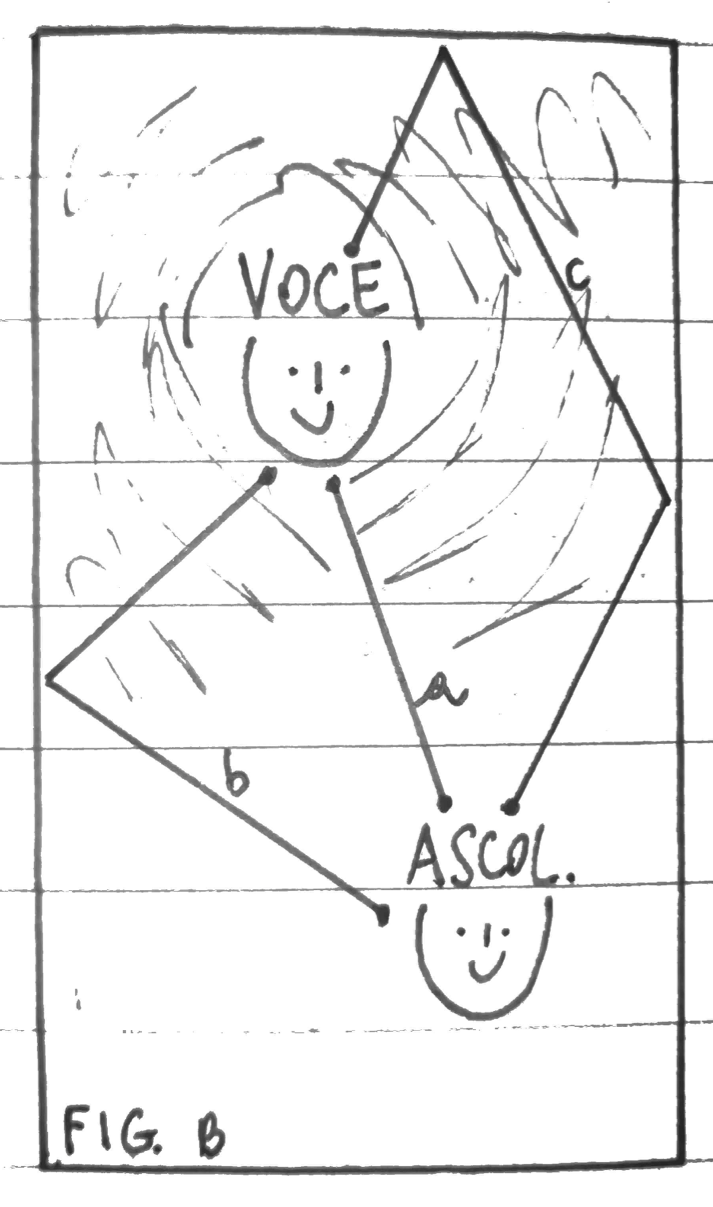 VOCE
c
a
b
ASCOL.
FIG. B